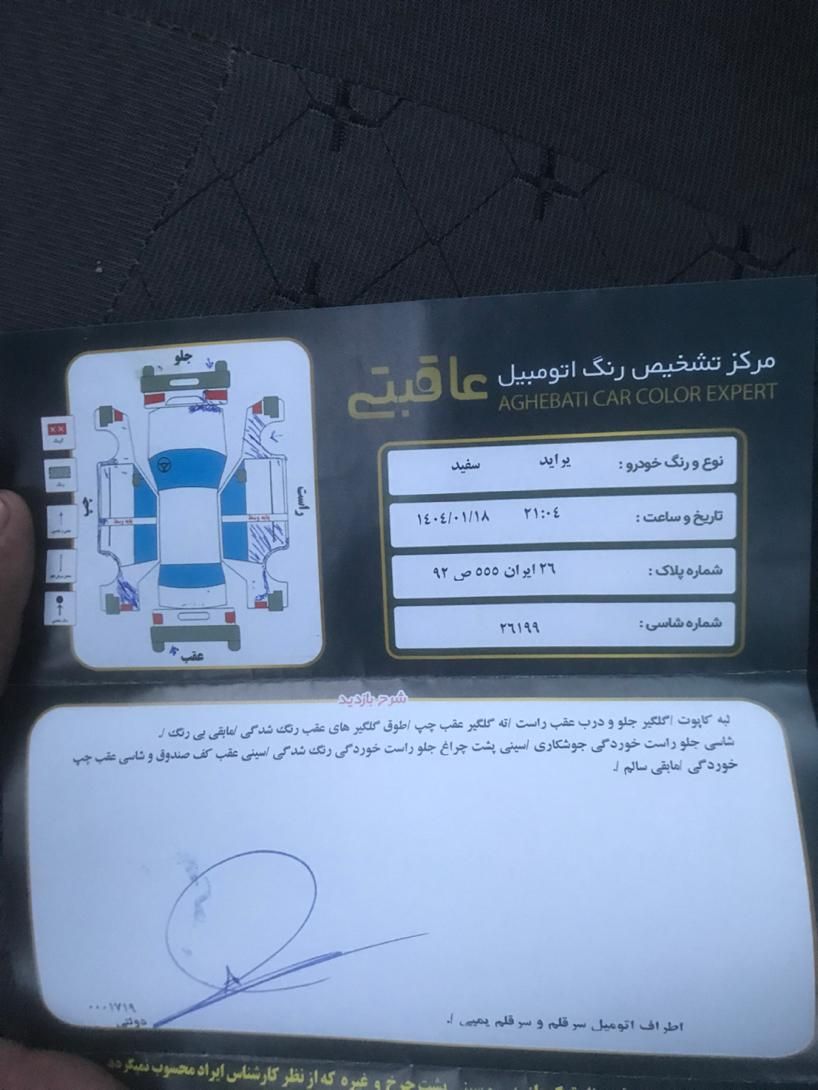 مرکز تشخیص رنگ اتومبیل عاقبتی
AGHEBATI CAR COLOR EXPERT
نوع و رنگ خودرو : پراید سفید
تاریخ و ساعت : ۲۱:۰۴ ۱۴۰۴/۰۱/۱۸
شماره پلاک : ۲۶ ایران ۵۵۵ ص ۹۲
شماره شاسی : ۲۶۱۹۹
جلو
راست
چپ
عقب
شرح بازدید
لبه کاپوت /گلگیر جلو و درب عقب راست /ته گلگیر عقب چپ /طوق گلگیر های عقب رنگ شدگی /مابقی بی رنگ /.
شاسی جلو راست خوردگی جوشکاری /سینی پشت چراغ جلو راست خوردگی رنگ شدگی /سینی عقب کف صندوق و شاسی عقب چپ
خوردگی /مابقی سالم /.
اطراف اتومبیل سر قلم و سر قلم پمپی /.
۰۰۰۱۷۱۹
دولتی
پشت چرخ و غیره که از نظر کارشناس ایراد محسوب نمیگردد